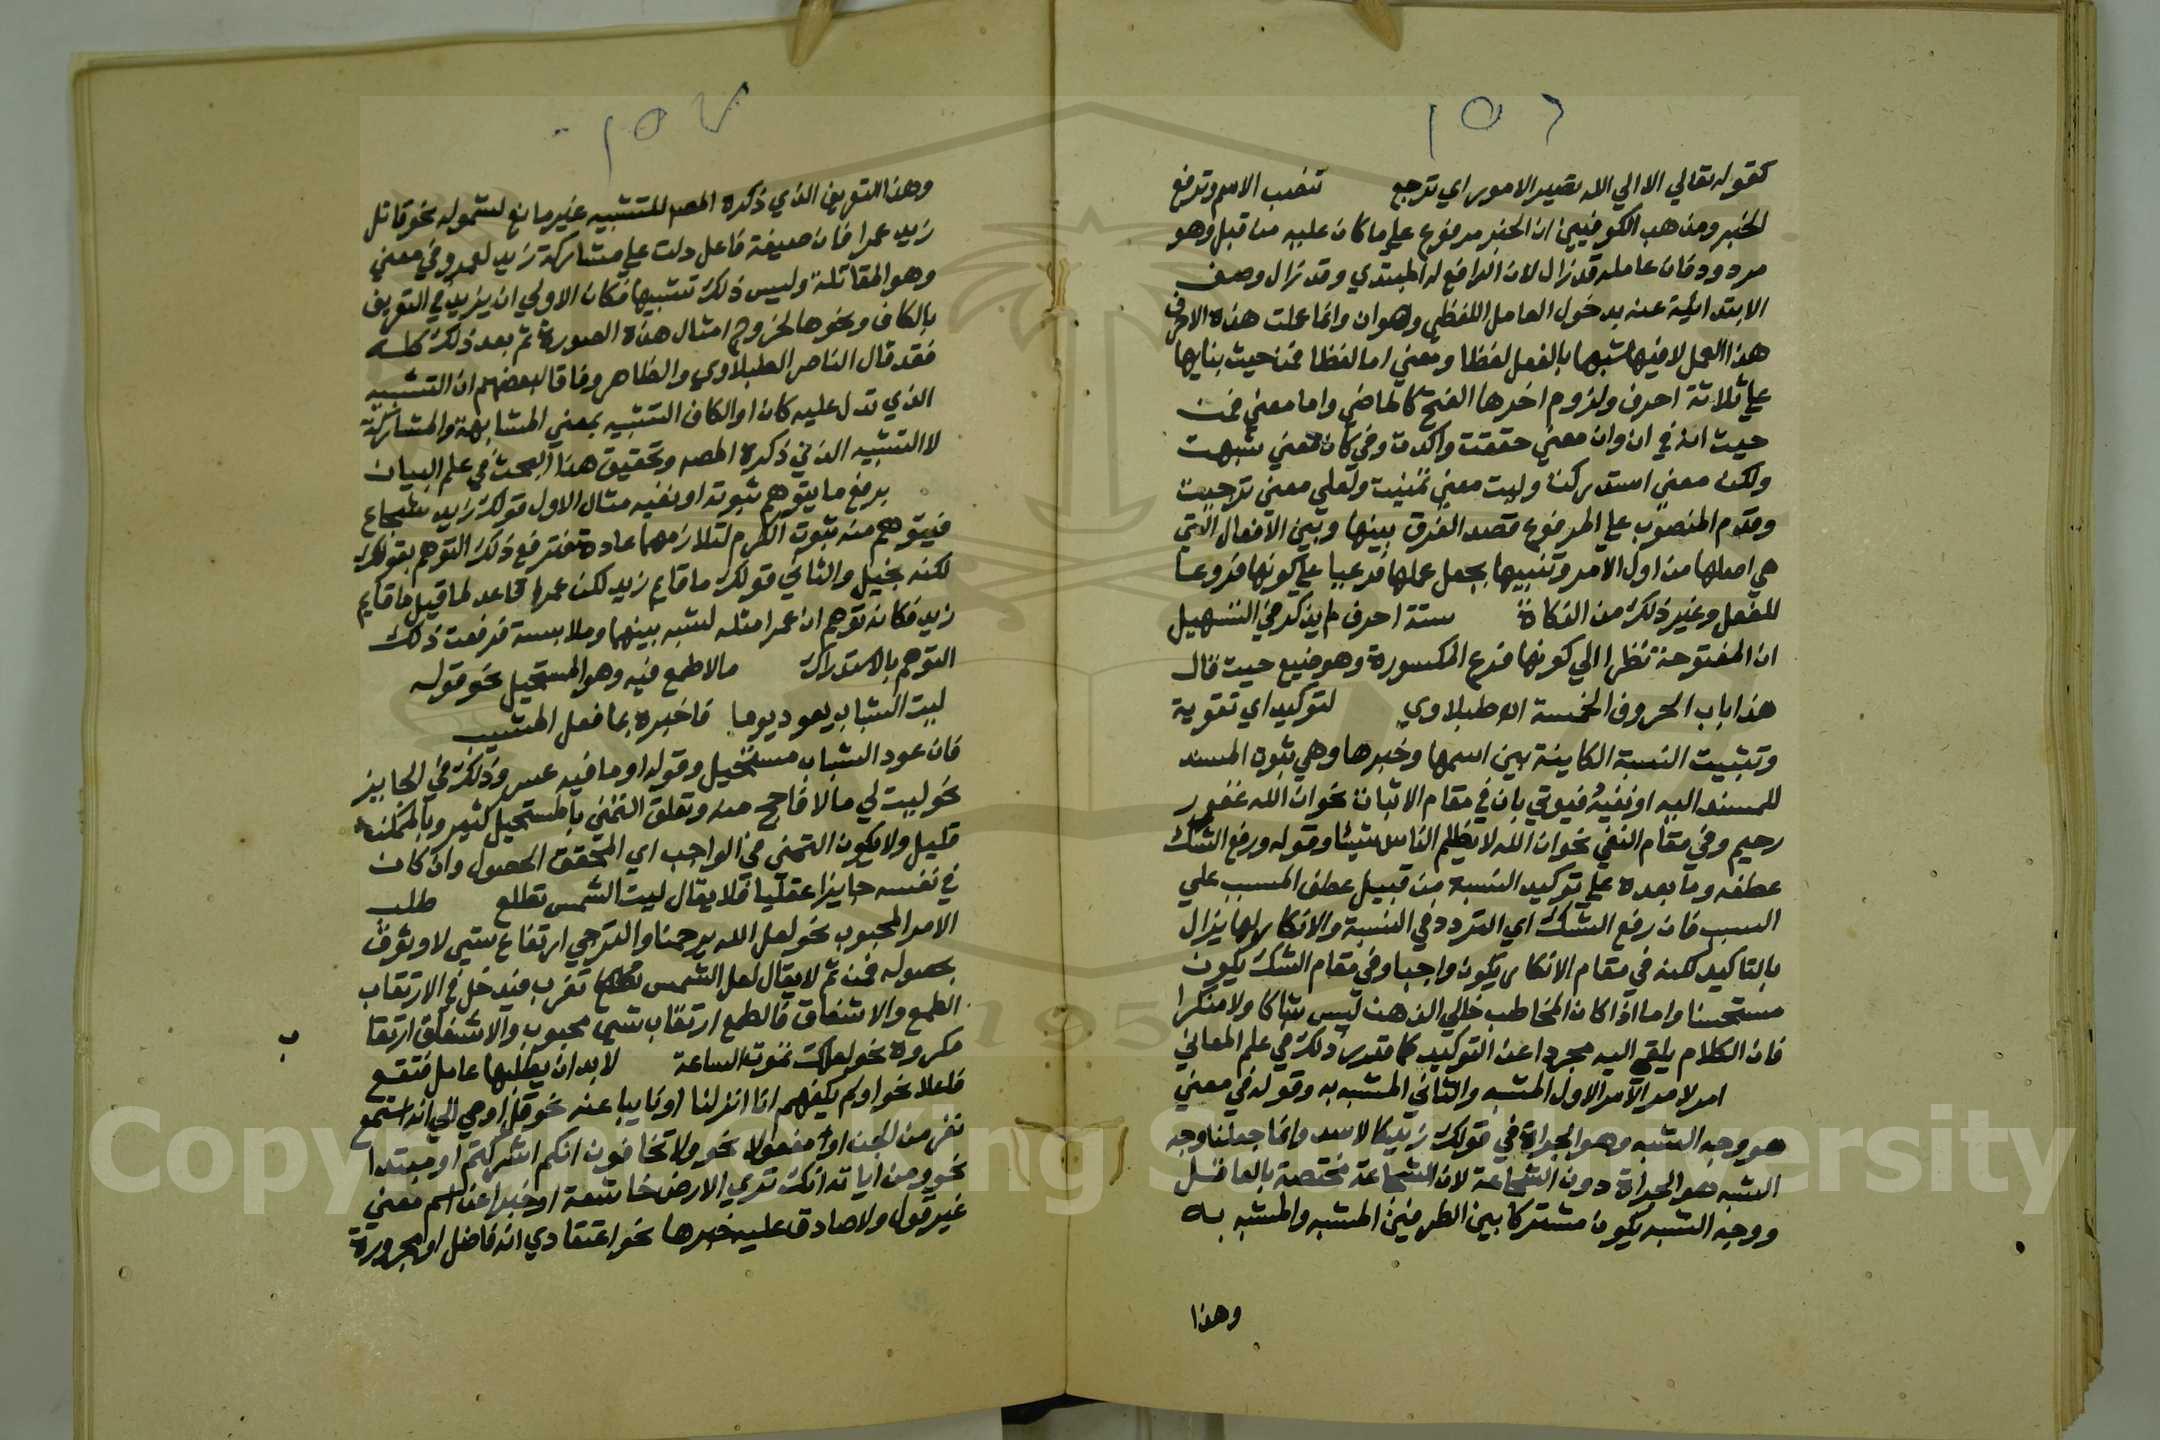 ١٥٦
كقوله تعالي الا الي الله تصير الامور اي ترجع تنصب الاسم وترفع
الخبر ومذهب الكوفيين ان الخبر مرفوع علي ما كان عليه من قبل وهو
مردود فان عامله قد زال لان الرافع له المبتدي وقد زال وصف
الابتدائية عنه بدخول العامل اللفظي وهو ان وانما عملت هذه الاحرف
هذا العمل لا فيها شبها بالفعل لفظا ومعني اما لفظا فمن حيث بنايها
علي ثلاثة احرف ولزوم اخرها الفتح كالماضي واما معني فمن
حيث انه في ان وان معني حققت واكدت وفي كان معني شبهت
ولكن معني استدركت وليت معني تمنيت ولعلي معني ترجيت
وقدم المنصوب علي المرفوع قصد الفرق بينها وبين الافعال التي
هي اصلها من اول الامر وتنبيها بجعل عملها فرعيا علي كونها فروعا
للفعل وغير ذلك من النكاة ستة احرف لم يذكر في التسهيل
ان المفتوحة نظرا الي كونها فرع المكسورة وهو ضيع حيث قال
هذا باب الحروف الخمسة اه طبلاوي لتوكيد اي تقوية
وتثبيت النسبة الكاينة بين اسمها وخبرها وهي ثبوة المسند
للمسند اليه او نفيه فيوتي بان في مقام الاثبات نحو ان الله غفور
رحيم وفي مقام النفي نحو ان الله لا يظلم الناس شيئا وقوله ورفع الشك
عطفه وما بعده علي توكيد النسبة من قبيل عطف المسبب علي
السبب فان رفع الشك اي التردد في النسبة والانكار لها يزال
بالتاكيد لكنه في مقام الانكار يكون واجبا وفي مقام الشك يكون
مستحسنا واما اذا كان المخاطب خالي الذهن ليس شاكا ولا منكرا
فان الكلام يلقي اليه مجردا عن التوكيد كما قدر ذلك في علم المعاني
امر لامر الامر الاول المشبه والثاني المشبه به وقوله في معني
هو وجه الشبه وهو الجراة في قولك زيد كالاسد وانما جعلنا وجه
الشبه هو الجراة دون الشجاعة لان الشجاعة مختصة بالعاقل
ووجه الشبه يكون مشتركا بين الطرفين المشبه والمشبه به
وهذا
١٥٧
وهذا التعريف الذي ذكره المصم للتشبيه غير مانع لشموله نحو قاتل
زيد عمرا فان صيغة فاعل دلت علي مشاركة زيد لعمرو في معني
وهو المقاتلة وليس ذلك تشبيها فكان الاولي ان يزيد في التعريف
بالكاف ونحوها لخروج امثال هذه الصورة ثم بعد ذلك كله
فقد قال الناصر الطبلاوي والظاهر وفاقا لبعضهم ان التشبيه
الذي تدل عليه كان او الكاف التشبيه بمعني المشابهة والمشاركة
لا التشبيه الذي ذكره المصه وتحقيق هذا البحث في علم البيان
برفع ما يتوهم ثبوته او نفيه مثال الاول قولك زيد شجاع
فيتوهم منه ثبوت الكرم لتلازمهما عادة فترفع ذلك التوهم بقولك
لكنه بخيل والثاني قولك ما قايم زيد لكن عمرا قاعد لما قيل ما قايم
زيد فكانه توهم ان عمرا مثله لشبه بينهما وملابسة فرفعت ذلك
التوهم بالاستدراك مالا طمع فيه وهو المستحيل نحو قوله
ليت الشباب يعود يوما فاخبره بما فعل المشيب
فان عود الشباب مستحيل وقوله او ما فيه عسر وذلك في الجايز
نحو ليت لي مالا فاحج منه وتعلق التمني بالمستحيل كثير وبالممكن
قليل ولا يكون التمني في الواجب اي المحقق الحصول وان كان
في نفسه جايزا عقليا فلا يقال ليت الشمس تطلع طلب
الامر المحبوب نحو لعل الله يرحمنا والترجي ارتفاع شي لا وثوق
بحصوله فمن ثم لا يقال لعل الشمس تغرب فيدخل في الارتقاب
الطمع والاشفاق فالطمع ارتقاب شي محبوب والاشفاق ارتقا
ب
مكروه نحو لعلك تموت الساعة لا بد ان يطلبها عامل فتقع
فاعلا نحو او لم يكفهم انا انزلنا او نايبا عنه نحو قل اوحي الي انه استمع
نفر من الجن او مفعولا نحو ولا تخافون انكم اشركتم او مبتدا
نحو ومن اياته انك تري الارض خاشعة او خبرا عن اسم معني
غير قول ولا صادق عليه خبرها نحو اعتقادي انه فاضل او مجرورة